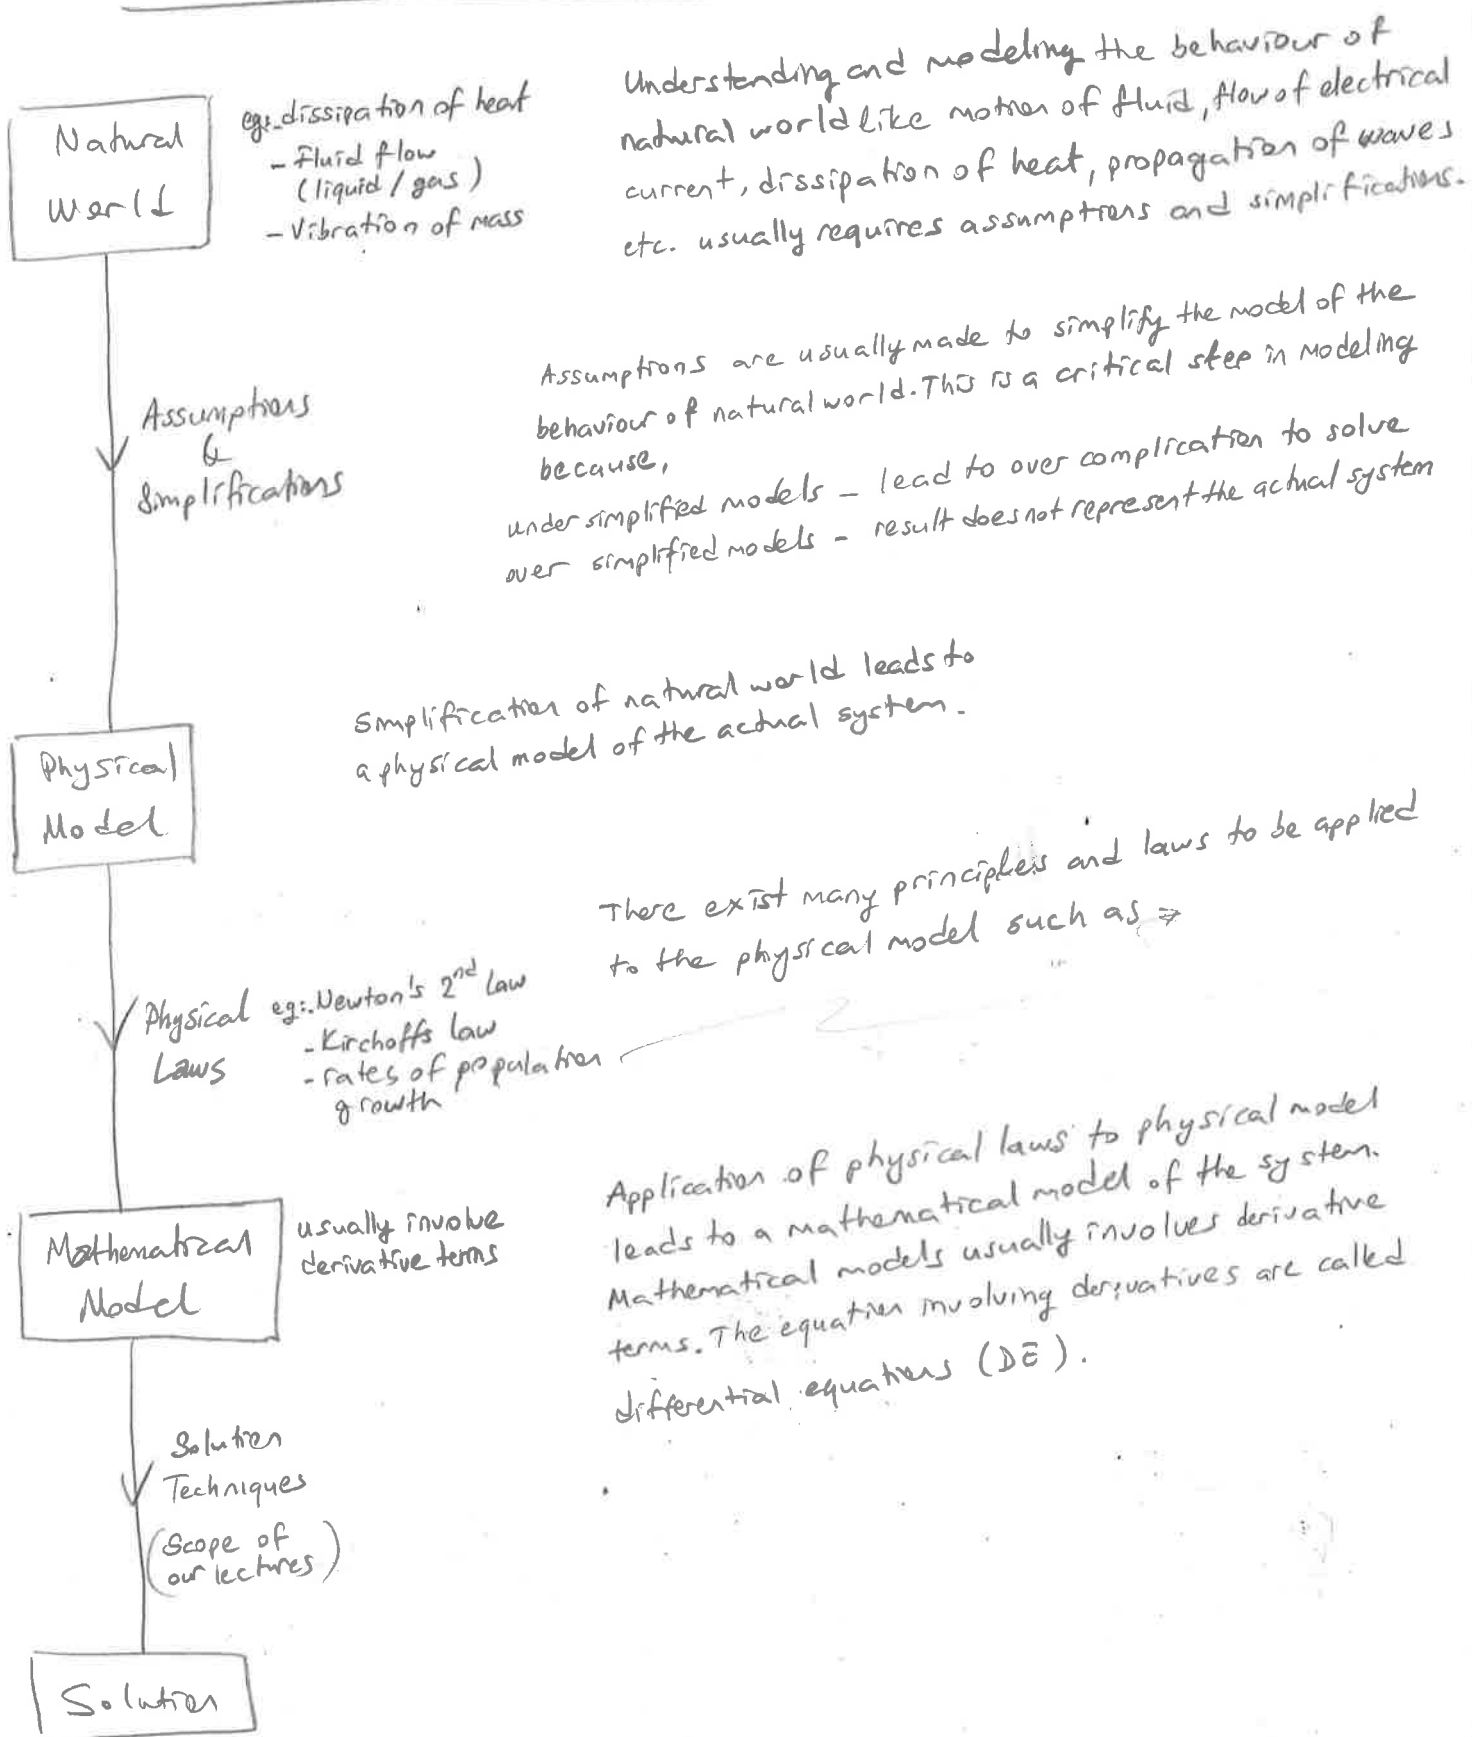 Natural
World
eg:- dissipation of heat
- Fluid flow
(liquid / gas)
- Vibration of mass
Understanding and modeling the behaviour of
natural world like motion of fluid, flow of electrical
current, dissipation of heat, propagation of waves
etc. usually requires assumptions and simplifications.
Assumptions
&
Simplifications
Assumptions are usually made to simplify the model of the
behaviour of natural world. This is a critical step in modeling
because,
under simplified models - lead to over complication to solve
over simplified models - result does not represent the actual system
Physical
Model
Simplification of natural world leads to
a physical model of the actual system.
There exist many principles and laws to be applied
to the physical model such as ⇒
Physical
Laws
eg:. Newton's 2nd Law
- Kirchoffs law
- rates of population
growth
Mathematical
Model
usually involve
derivative terms
Application of physical laws to physical model
leads to a mathematical model of the system.
Mathematical models usually involves derivative
terms. The equation involving derivatives are called
differential equations (DE).
Solution
Techniques
(Scope of
our lectures)
Solution